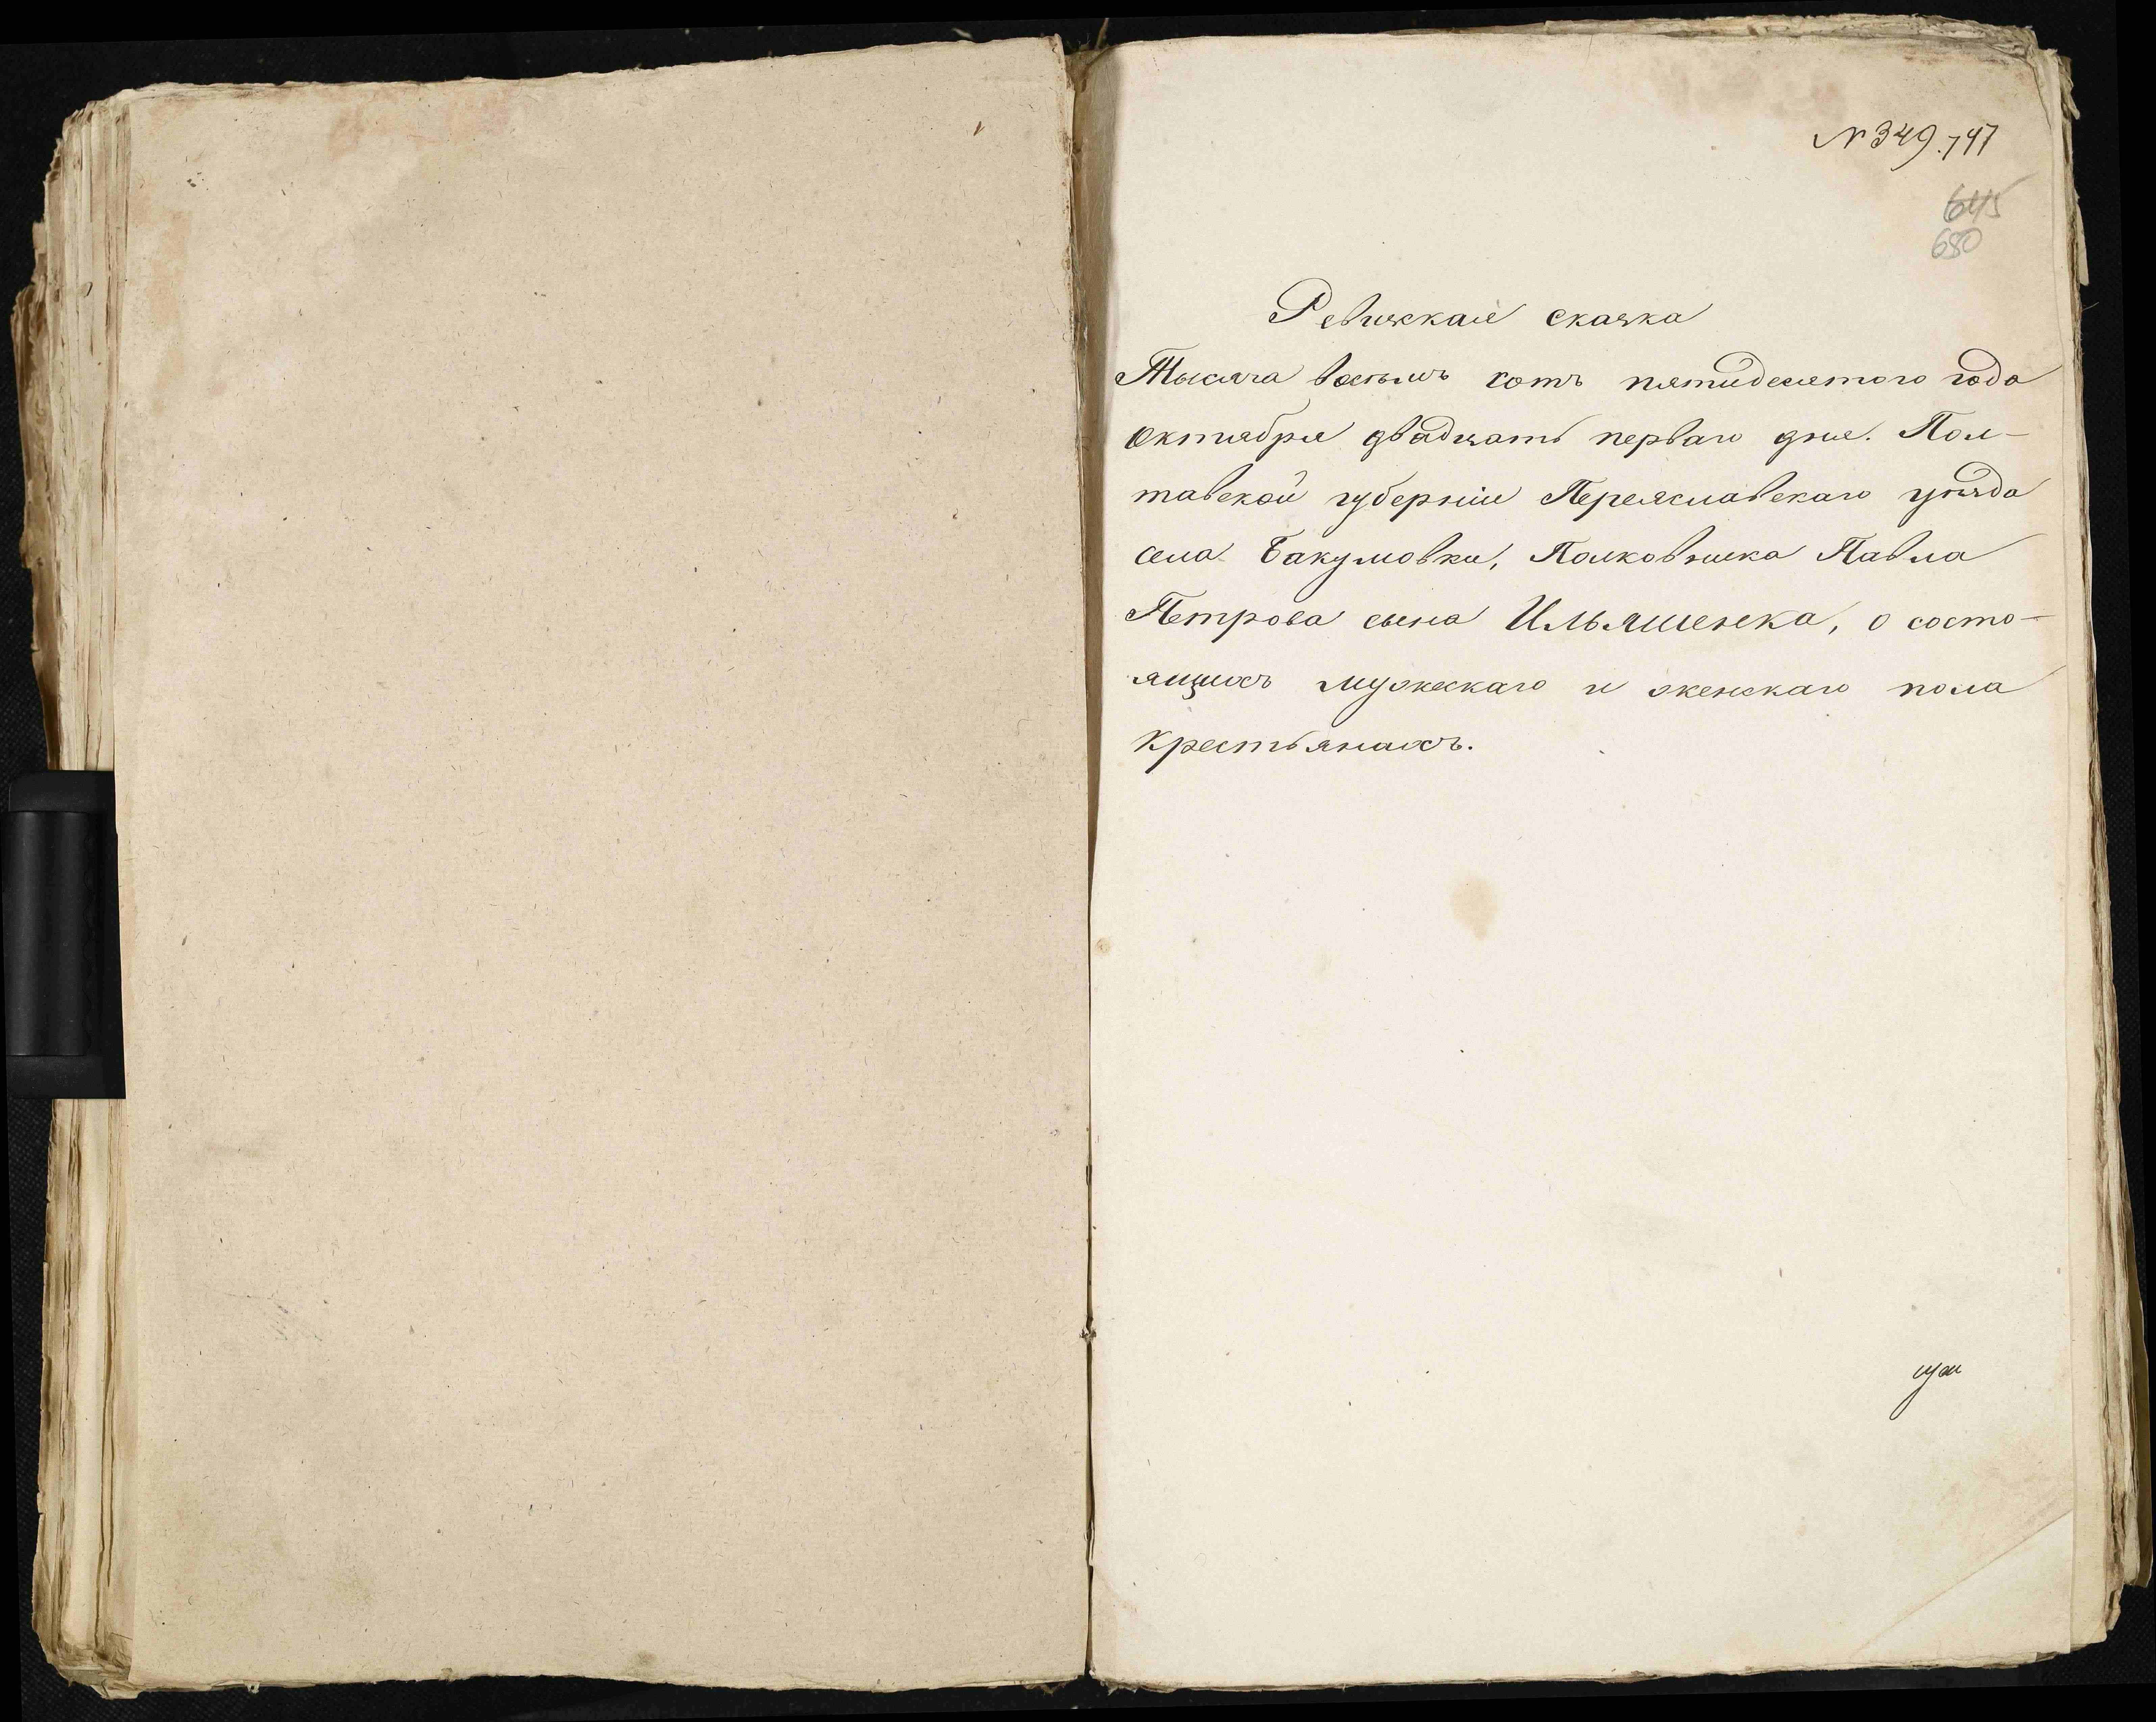 № 349. 747
645
680
Ревижская сказка
Тысяча восемь сотъ пятидесятого года
Октября двадцать перваго дня. Пол-
тавской губерніи Переяславскаго уѣзда
села Бакумовки, Полковника Павла
Петрова сына Ильяшенка, о состо-
ящихъ мужескаго и женскаго пола
крестьянахъ.